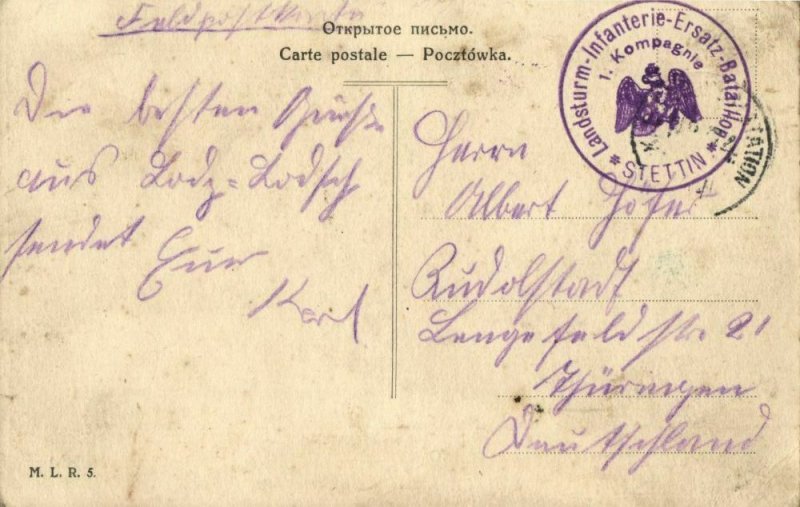 Feldpostkarte
Открытое письмо.
Carte postale — Pocztówka.
Landsturm-Infanterie-Ersatz-Bataillon
1. Kompagnie
* STETTIN *
STATION
Die besten Grüße
aus Lodz=Lodsch
sendet Euer
Karl
Herrn
Albert Hofer
Rudolstadt
Lengefeldstr. 21
Thüringen
Deutschland
M. L. R. 5.